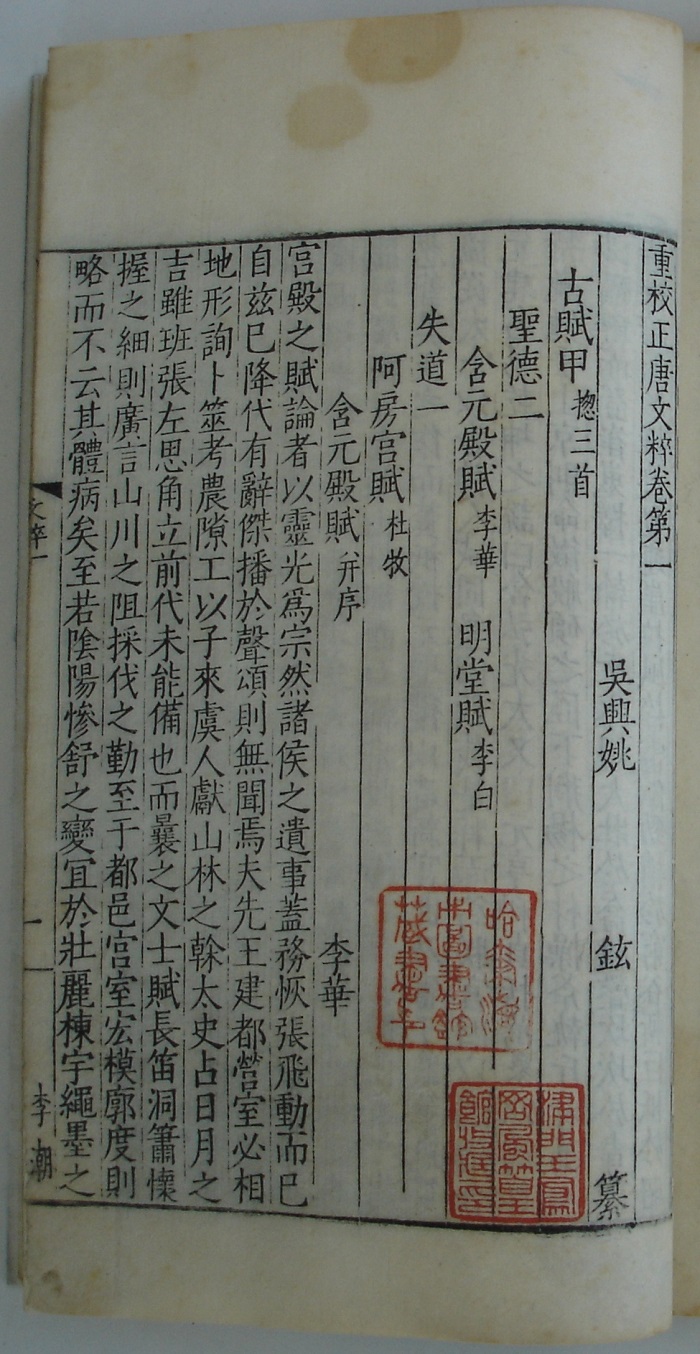 重校正唐文粹卷第一
吳興姚 鉉 纂
古賦甲 揔三首
聖德二
含元殿賦 李華 明堂賦 李白
失道一
阿房宮賦 杜牧
含元殿賦 并序 李華
宮殿之賦論者以靈光爲宗然諸侯之遺事蓋務恢張飛動而已
自茲已降代有辭傑播於聲頌則無聞焉夫先王建都營室必相
地形詢卜筮考農隙工以子來虞人獻山林之榦太史占日月之
吉雖班張左思角立前代未能備也而曩之文士賦長笛洞簫懷
握之細則廣言山川之阻採伐之勤至于都邑宮室宏模廓度則
略而不云其體病矣至若陰陽慘舒之變宜於壯麗棟宇繩墨之
文粹一
一
李潮